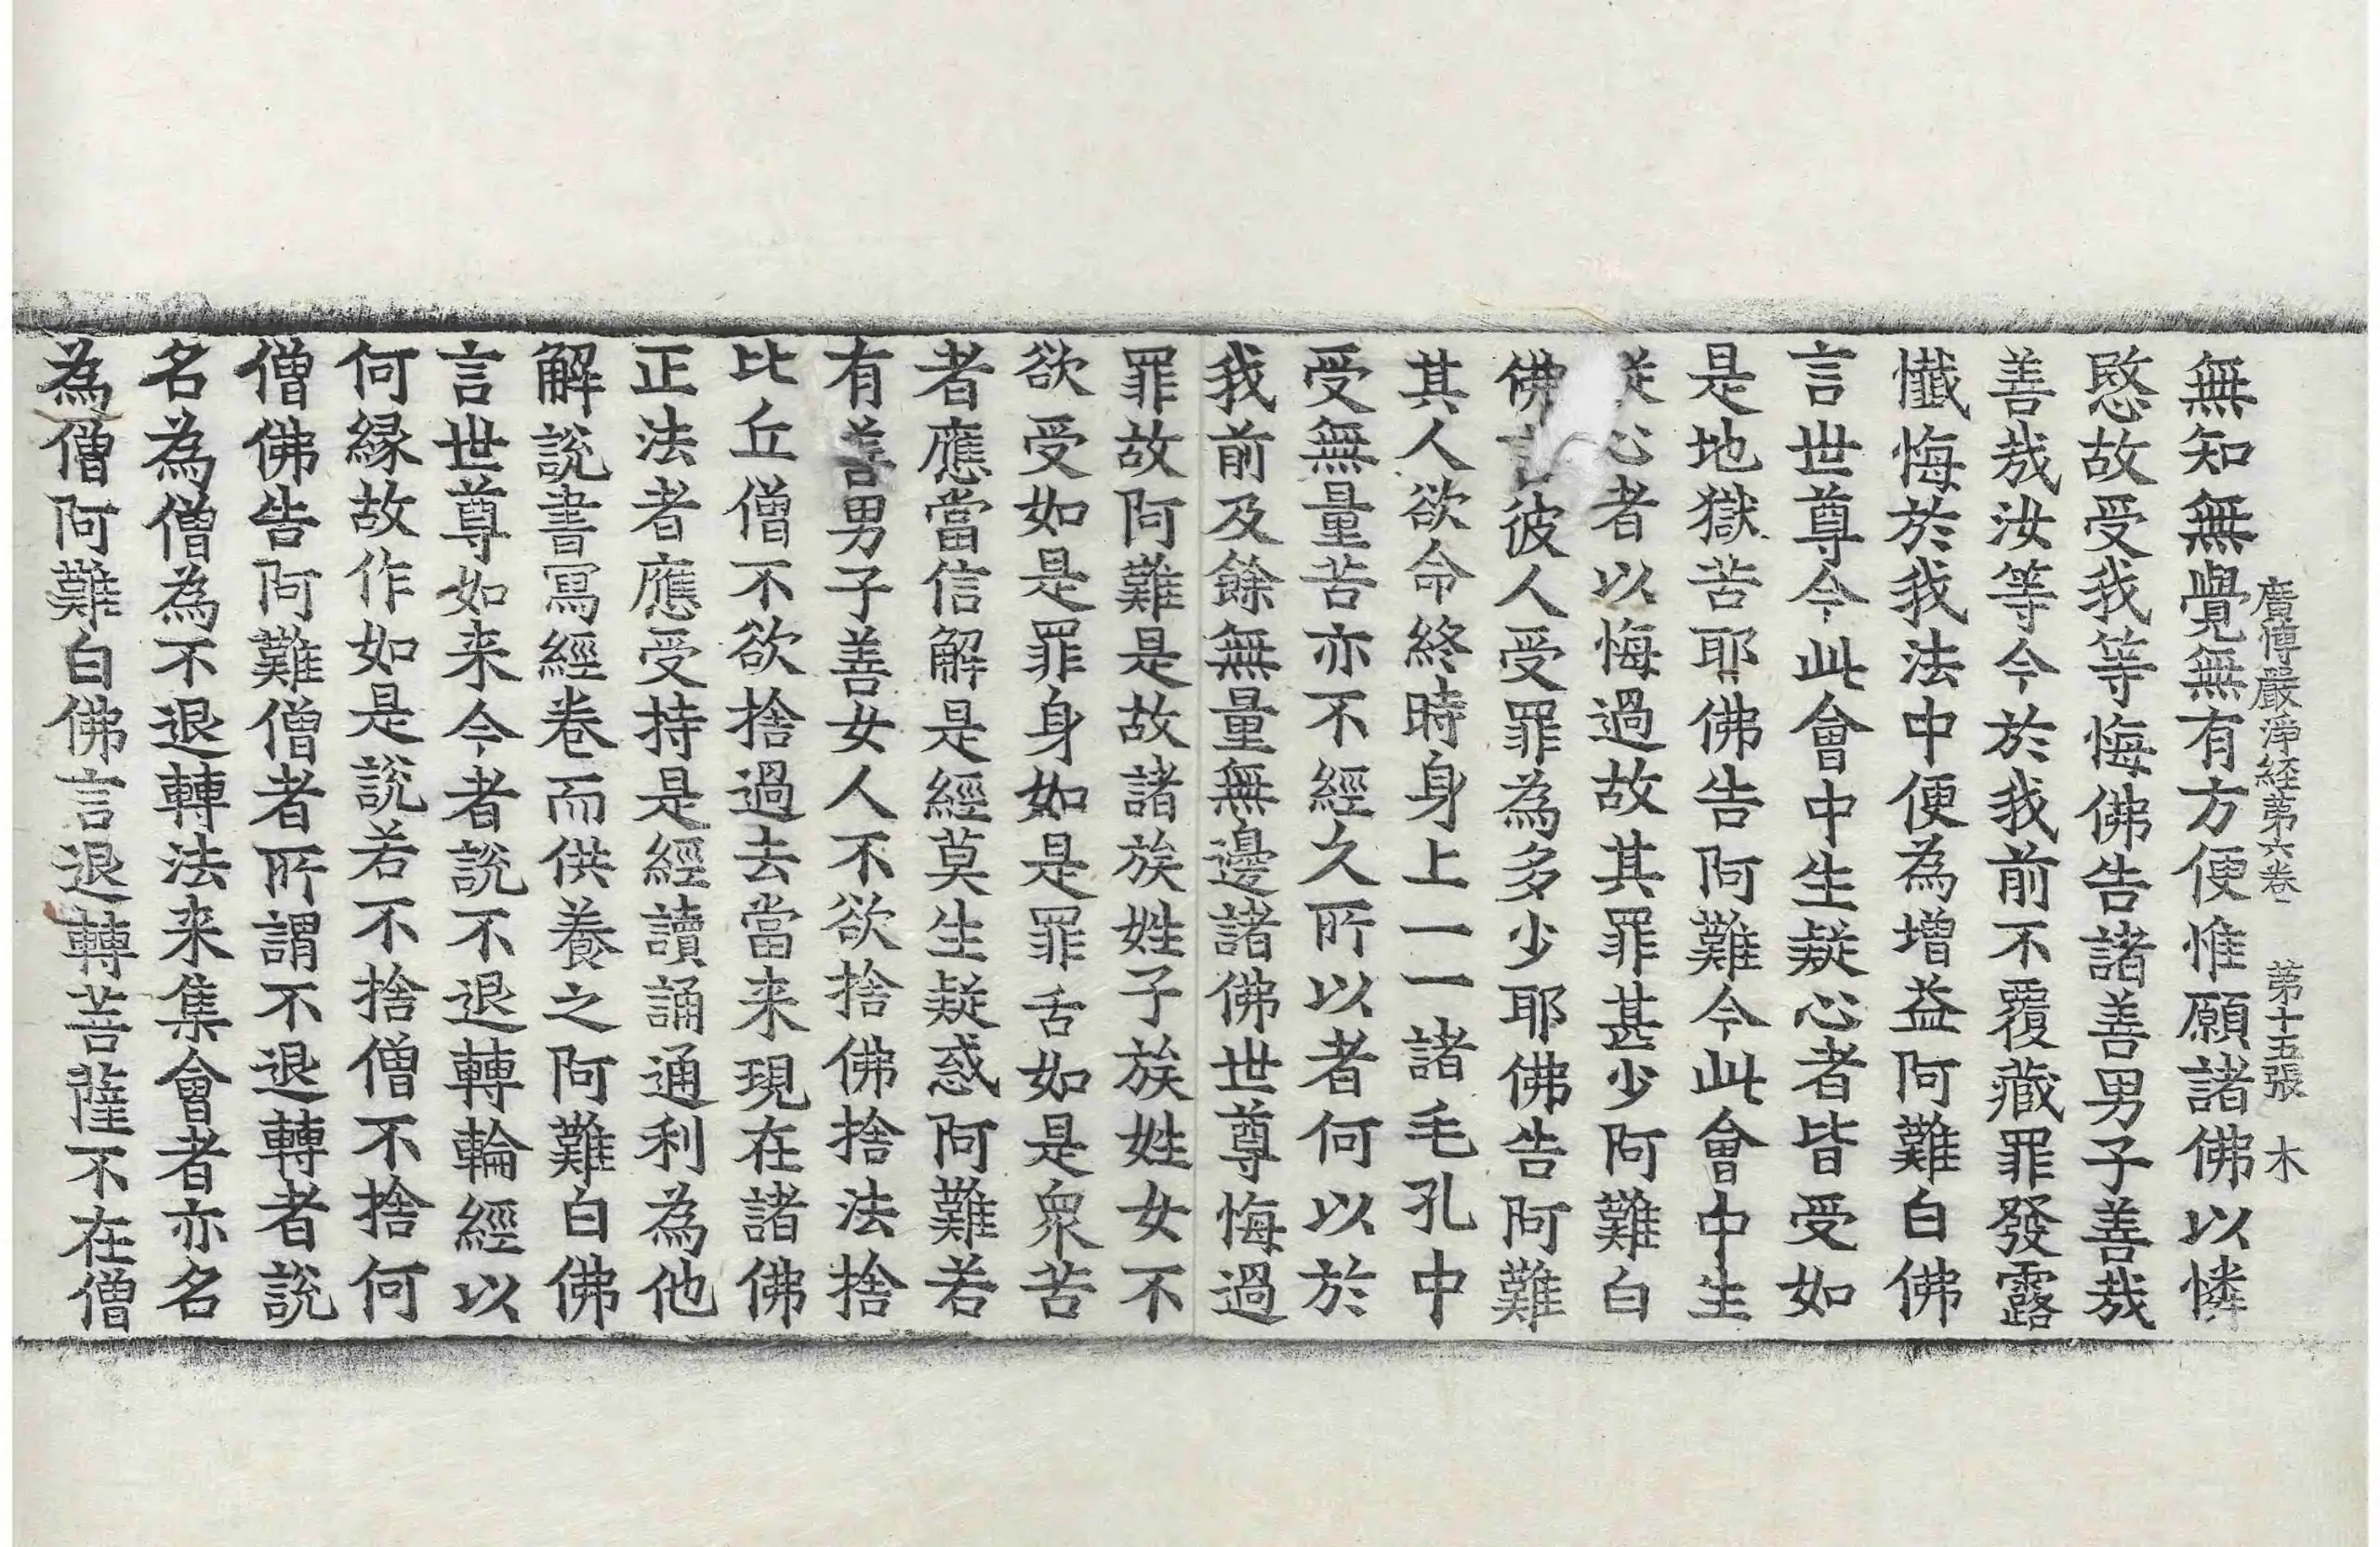 廣博嚴淨経苐六卷 苐十五張 木
無知無覺無有方便惟願諸佛以憐
愍故受我等悔佛告諸善男子善哉
善哉汝等今於我前不覆藏罪發露
懺悔於我法中便為增益阿難白佛
言世尊今此會中生疑心者皆受如
是地獄苦耶佛告阿難今此會中生
疑心者以悔過故其罪甚少阿難白
佛言彼人受罪為多少耶佛告阿難
其人欲命終時身上一一諸毛孔中
受無量苦亦不經久所以者何以於
我前及餘無量無邊諸佛世尊悔過
罪故阿難是故諸族姓子族姓女不
欲受如是罪身如是罪舌如是衆苦
者應當信解是經莫生疑惑阿難若
有善男子善女人不欲捨佛捨法捨
比丘僧不欲捨過去當来現在諸佛
正法者應受持是經讀誦通利為他
解說書寫經卷而供養之阿難白佛
言世尊如来今者說不退轉輪經以
何縁故作如是說若不捨僧不捨何
僧佛告阿難僧者所謂不退轉者說
名為僧為不退轉法来集會者亦名
為僧阿難白佛言退轉菩薩不在僧